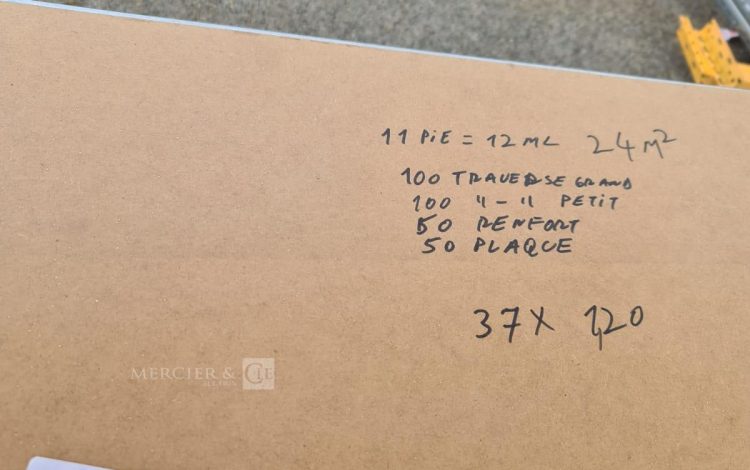 11 PiE = 12 ML 24 M²
100 TRAVERSE GRAND
100 " - " PETiT
50 RENFORT
50 PLAQUE
37 X 1,20
MERCIER & CIE
AUCTION